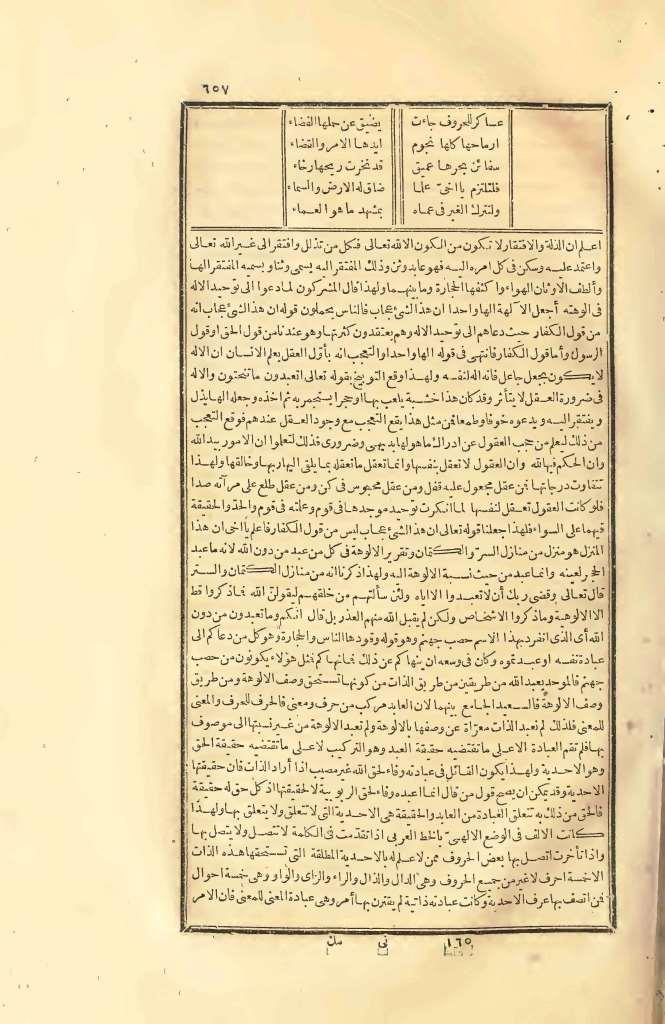 ٦٥٧
عساكر للحروف جاءت يضيق عن حملها القضاء
ارماحها كلها نجوم ايدها الامر والقضاء
سفائن بحرها عميق قد مخرت ريحها رخاء
فلتلتزم يا اخىّ علما ضاق له الارض والسماء
ولتترك الغير فى عماه بمشهد ما هو العماء
اعلم ان الذلة والافتقار لا تكون من الكون الا لله تعالى فكل من تذلل وافتقر الى غير الله تعالى
واعتمد عليه وسكن فى كل امره اليه فهو عابد وثن وذلك المفتقر اليه يسمى وثنا ويسميه المفتقر الها
وألطف الاوثان الهواء واكثفها الحجارة وما بينهما ولهذا قال المشركون لما دعوا الى توحيد الاله
فى الوهته أجعل الآلهة الها واحدا ان هذا لشئ عجاب فالناس يحملون قوله ان هذا لشئ عجاب انه
من قول الكفار حيث دعاهم الى توحيد الاله وهم يعتقدون كثرتها وهو عندنا من قول الحق او قول
الرسول وأما قول الكفار فانتهى فى قوله الها واحدا والتعجب انه بأوّل العقل يعلم الانسان ان الاله
لا يكون بجعل جاعل فانه اله لنفسه ولهذا وقع التوبيخ بقوله تعالى اتعبدون ما تنحتون والاله
فى ضرورة العقل لا يتأثر وقد كان هذا خشبة يلعب بها او حجر ايستجمر به ثم اخذه وجعله الها يذل
ويفتقر اليه ويدعوه خوفا وطمعا فمن مثل هذا يقع التعجب مع وجود العقل عندهم فوقع التعجب
من ذلك ليعلم من حجب العقول عن ادراك ما هو لها بديهى وضرورى فذلك لتعلموا ان الامور بيد الله
وان الحكم فيها لله وان العقول لا تعقل بنفسها وانما تعقل ما تعقله بما يلقى اليها ربها وخالقها ولهذا
تتفاوت درجاتها فمن عقل مجعول عليه قفل ومن عقل محبوس فى كن ومن عقل طلع على مرآته صدا
فلو كانت العقول تعقل لنفسها لما انكرت توحيد موجدها فى قوم وعلته فى قوم والحدّ والحقيقة
فيهما على السواء فلهذا جعلنا قوله تعالى ان هذا لشئ عجاب ليس من قول الكفار فاعلم يا اخى ان هذا
المنزل هو منزل من منازل السرّ والكتمان وتقرير الالوهة فى كل من عبد من دون الله لانه ما عبد
الحجر لعينه وانما عبد من حيث نسبة الالوهة اليه ولهذا ذكرنا انه من منازل الكتمان والستر
قال تعالى وقضى ربك أن لا تعبدوا الا اياه ولئن سألتهم من خلقهم ليقولنّ الله فما ذكروا قط
الا الالوهية وما ذكروا الاشخاص ولكن لم يقبل الله منهم العذر بل قال انكم وما تعبدون من دون
الله أى الذى انفرد بهذا الاسم حصب جهنم وهو قوله وقودها الناس والحجارة وهو كل من دعاكم الى
عبادة نفسه او عبدتموه وكان فى وسعه ان ينهاكم عن ذلك فما نهاكم فمثل هؤلاء يكونون من حصب
جهنم فالموحد يعبد الله من طريقين من طريق الذات من كونها تستحق وصف الالوهة ومن طريق
وصف الالوهة قال سعيد الجامع بينهما لان العابد مركب من حرف ومعنى فالحرف للحرف والمعنى
للمعنى فلذلك لم نعبد الذات معرّاة عن وصفها بالالوهة ولم تعبد الالوهة من غير نسبتها الى موصوف
بها فلم تقم العبادة الا على ما تقتضيه حقيقة العبد وهو التركيب لا على ما تقتضيه حقيقة الحق
وهو الاحدية ولهذا يكون القائل فى عبادته وفاء لحق الله غير مصيب اذا أراد الذات فان حقيقتها
الاحدية وقد يمكن ان يصح قول من قال انما اعبده وفاء لحق الربوبية لا لحقيقتها اذ كل حق له حقيقة
فالحق من ذلك به تتعلق العبادة من العابد والحقيقة هى الاحدية التى لا تتعلق ولا يتعلق بها ولهذا
كانت الالف فى الوضع الالهىّ بالخط العربى اذا تقدّمت فى الكلمة لا تتصل ولا يتصل بها
واذا تأخرت اتصل بها بعض الحروف ممن لا علم له بالاحدية المطلقة التى تستحقها هذه الذات
الا خمسة احرف لا غير من جميع الحروف وهى الدال والذال والراء والزاى والواو وهى خمسة احوال
فمن اتصف بها عرف الاحدية وكانت عبادته ذاتية لم يقترن بها أمر وهى عبادة المعنى للمعنى فان الامر
١٦٥ نى مك